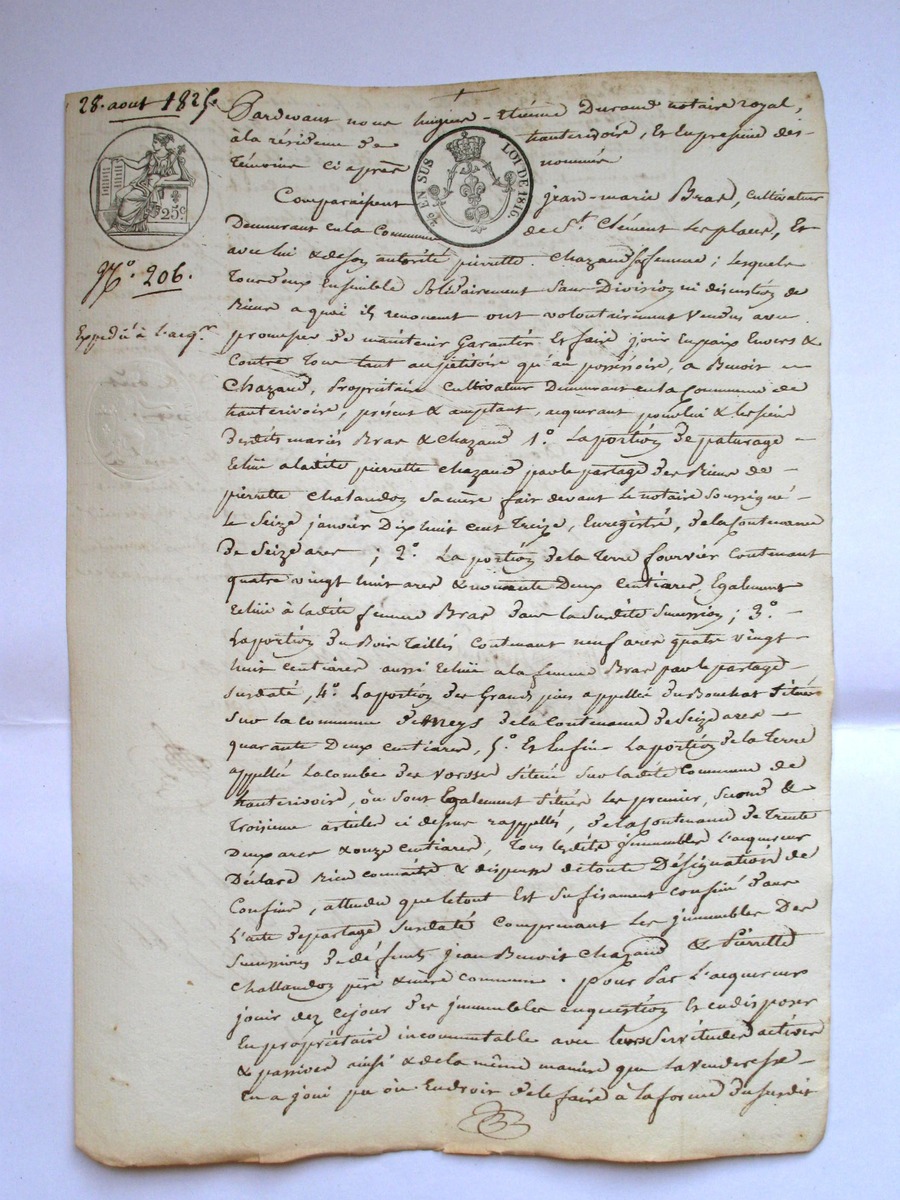 28. aout 1825.
25c
EN SUS LOI DE 1816.
N.° 206.
Expédié à l'acq.r
Pardevant nous Etienne Durand notaire royal,
à la résidence de hauterivoire, Et En présence des
témoins ci après nommés
Comparaissent jean-marie Bras, cultivateur
Demeurant en la Commune de S.t Clément les places, Et
avec lui & de son autorité pierrette Chazaud sa femme ; lesquels
Tous deux Ensemble Solidairement Sans Division ni discution de
Biens a quoi ils renoncent ont volontairement Vendus avec
promesse de maintenir Garantir Et faire jouir En paix Envers &
Contre Tous tant au pétitoire qu'au possessoire, a Benoit
Chazaud, Propriétaire Cultivateur Demeurant en la Commune de
hauterivoire, présent & acceptant, acquerant pour lui & les siens
Desdits mariés Bras & Chazaud 1.° La portion de paturage
Echüe a ladite pierrette Chazaud par le partage des Biens de
pierrette Chalandon sa mère fait devant le notaire Soussigné
le Seize janvier Dix huit cent Treize, Enregistré, de la Contenance
de Seize ares ; 2.° La portion de la Terre fourvier Contenant
quatre vingt huit ares & nonante Deux centiares, Egalement
Echüe à ladite femme Bras dans la Susdite Succession ; 3.°
La portion du Bois Taillis contenant neuf ares quatre vingt
huit centiares aussi Echüe a la femme Bras par le partage
susdaté, 4.° La portion des Grands pins appellée du Bouchat Située
sur la commune de meys de la contenance de Seize ares
quarante Deux centiares, 5.° Et Enfin La portion de la Terre
appellée La combe des vorsses Située Sur ladite Commune de
hauterivoire, où sont Egalement Situés les premier, second &
Troisieme articles ci dessus rappellés, de la Contenance de Trente
Deux ares & onze centiares, Tous lesdits jmmeubles l'acquereur
Déclare Bien connaitre & dispense de toute Désignation de
Confins, attendu que le tout Est Suffisament confiné dans
L'acte de partage Susdaté comprenant les jmmeubles Des
Successions de défunts jean Benoit Chazaud & Pierrette
Challandon père & mère communs. pour par l'acquereur
jouir dez cejour des jmmeubles en question Et en disposer
En propriétaire incommutable avec leurs Servitudes actives
& passives ainsi & de la même manière que la venderesse
En a joui pu où En droit de le faire à la forme du susdit